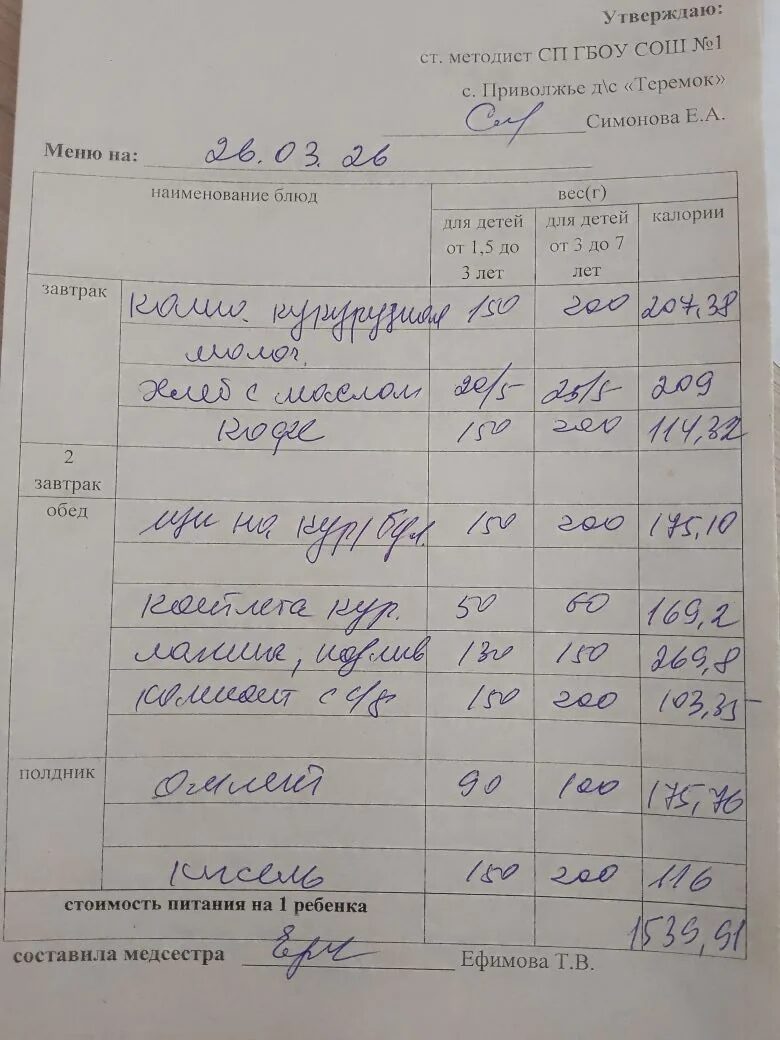 Утверждаю:
ст. методист СП ГБОУ СОШ №1
с. Приволжье д\с «Теремок»
Симонова Е.А.
Меню на: 26.03.26
наименование блюд вес(г)
для детей от 1,5 до 3 лет для детей от 3 до 7 лет калории
завтрак каша кукурузная 150 200 207,38
молоч.
хлеб с маслом 20/5 25/5 209
кофе 150 200 114,32
2 завтрак
обед щи на кур/бул. 150 200 175,10
котлета кур. 50 60 169,2
лапша, подлив 130 150 269,8
компот с с/ф 150 200 103,35
полдник омлет 90 100 175,76
кисель 150 200 116
стоимость питания на 1 ребенка 1539,91
составила медсестра Ефимова Т.В.